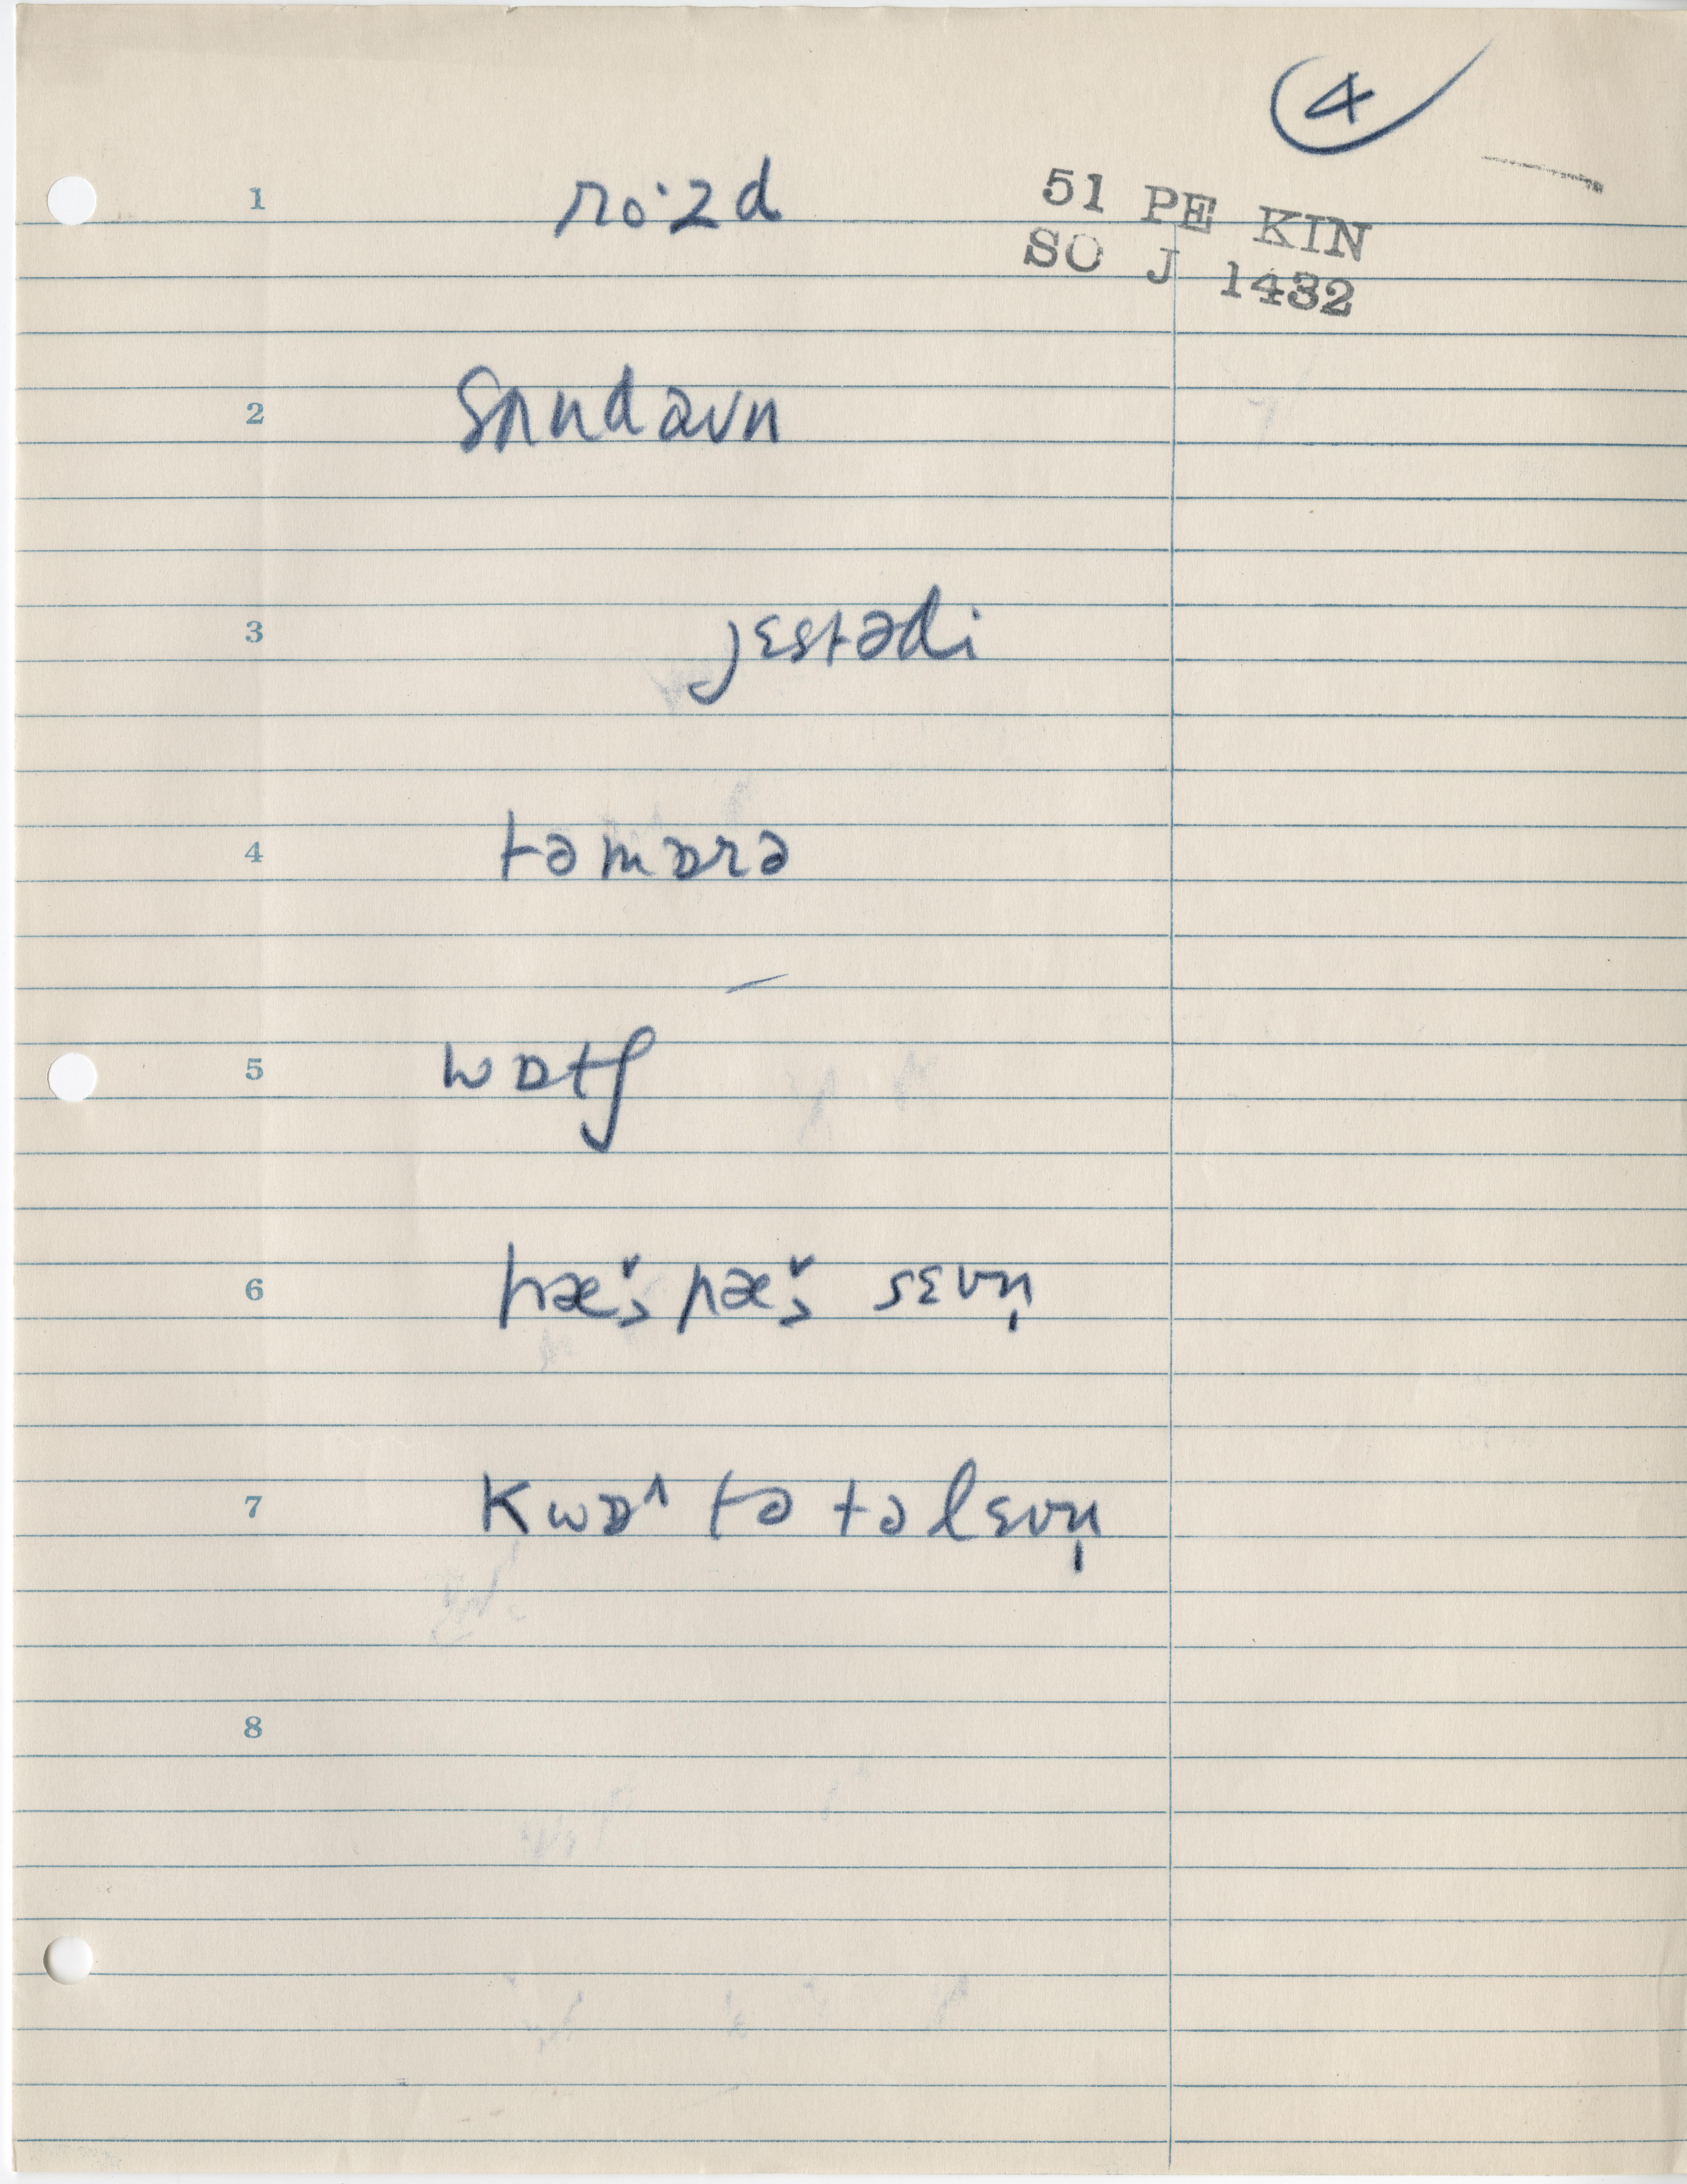 4
51 PE KIN
SO J 1432
1 ro·zd
2 sʌndaʊn
3 jɛstədi
4 təmɒrə
5 wɒtʃ
6 sɛvn̩
7 tə təlɛvn̩
8